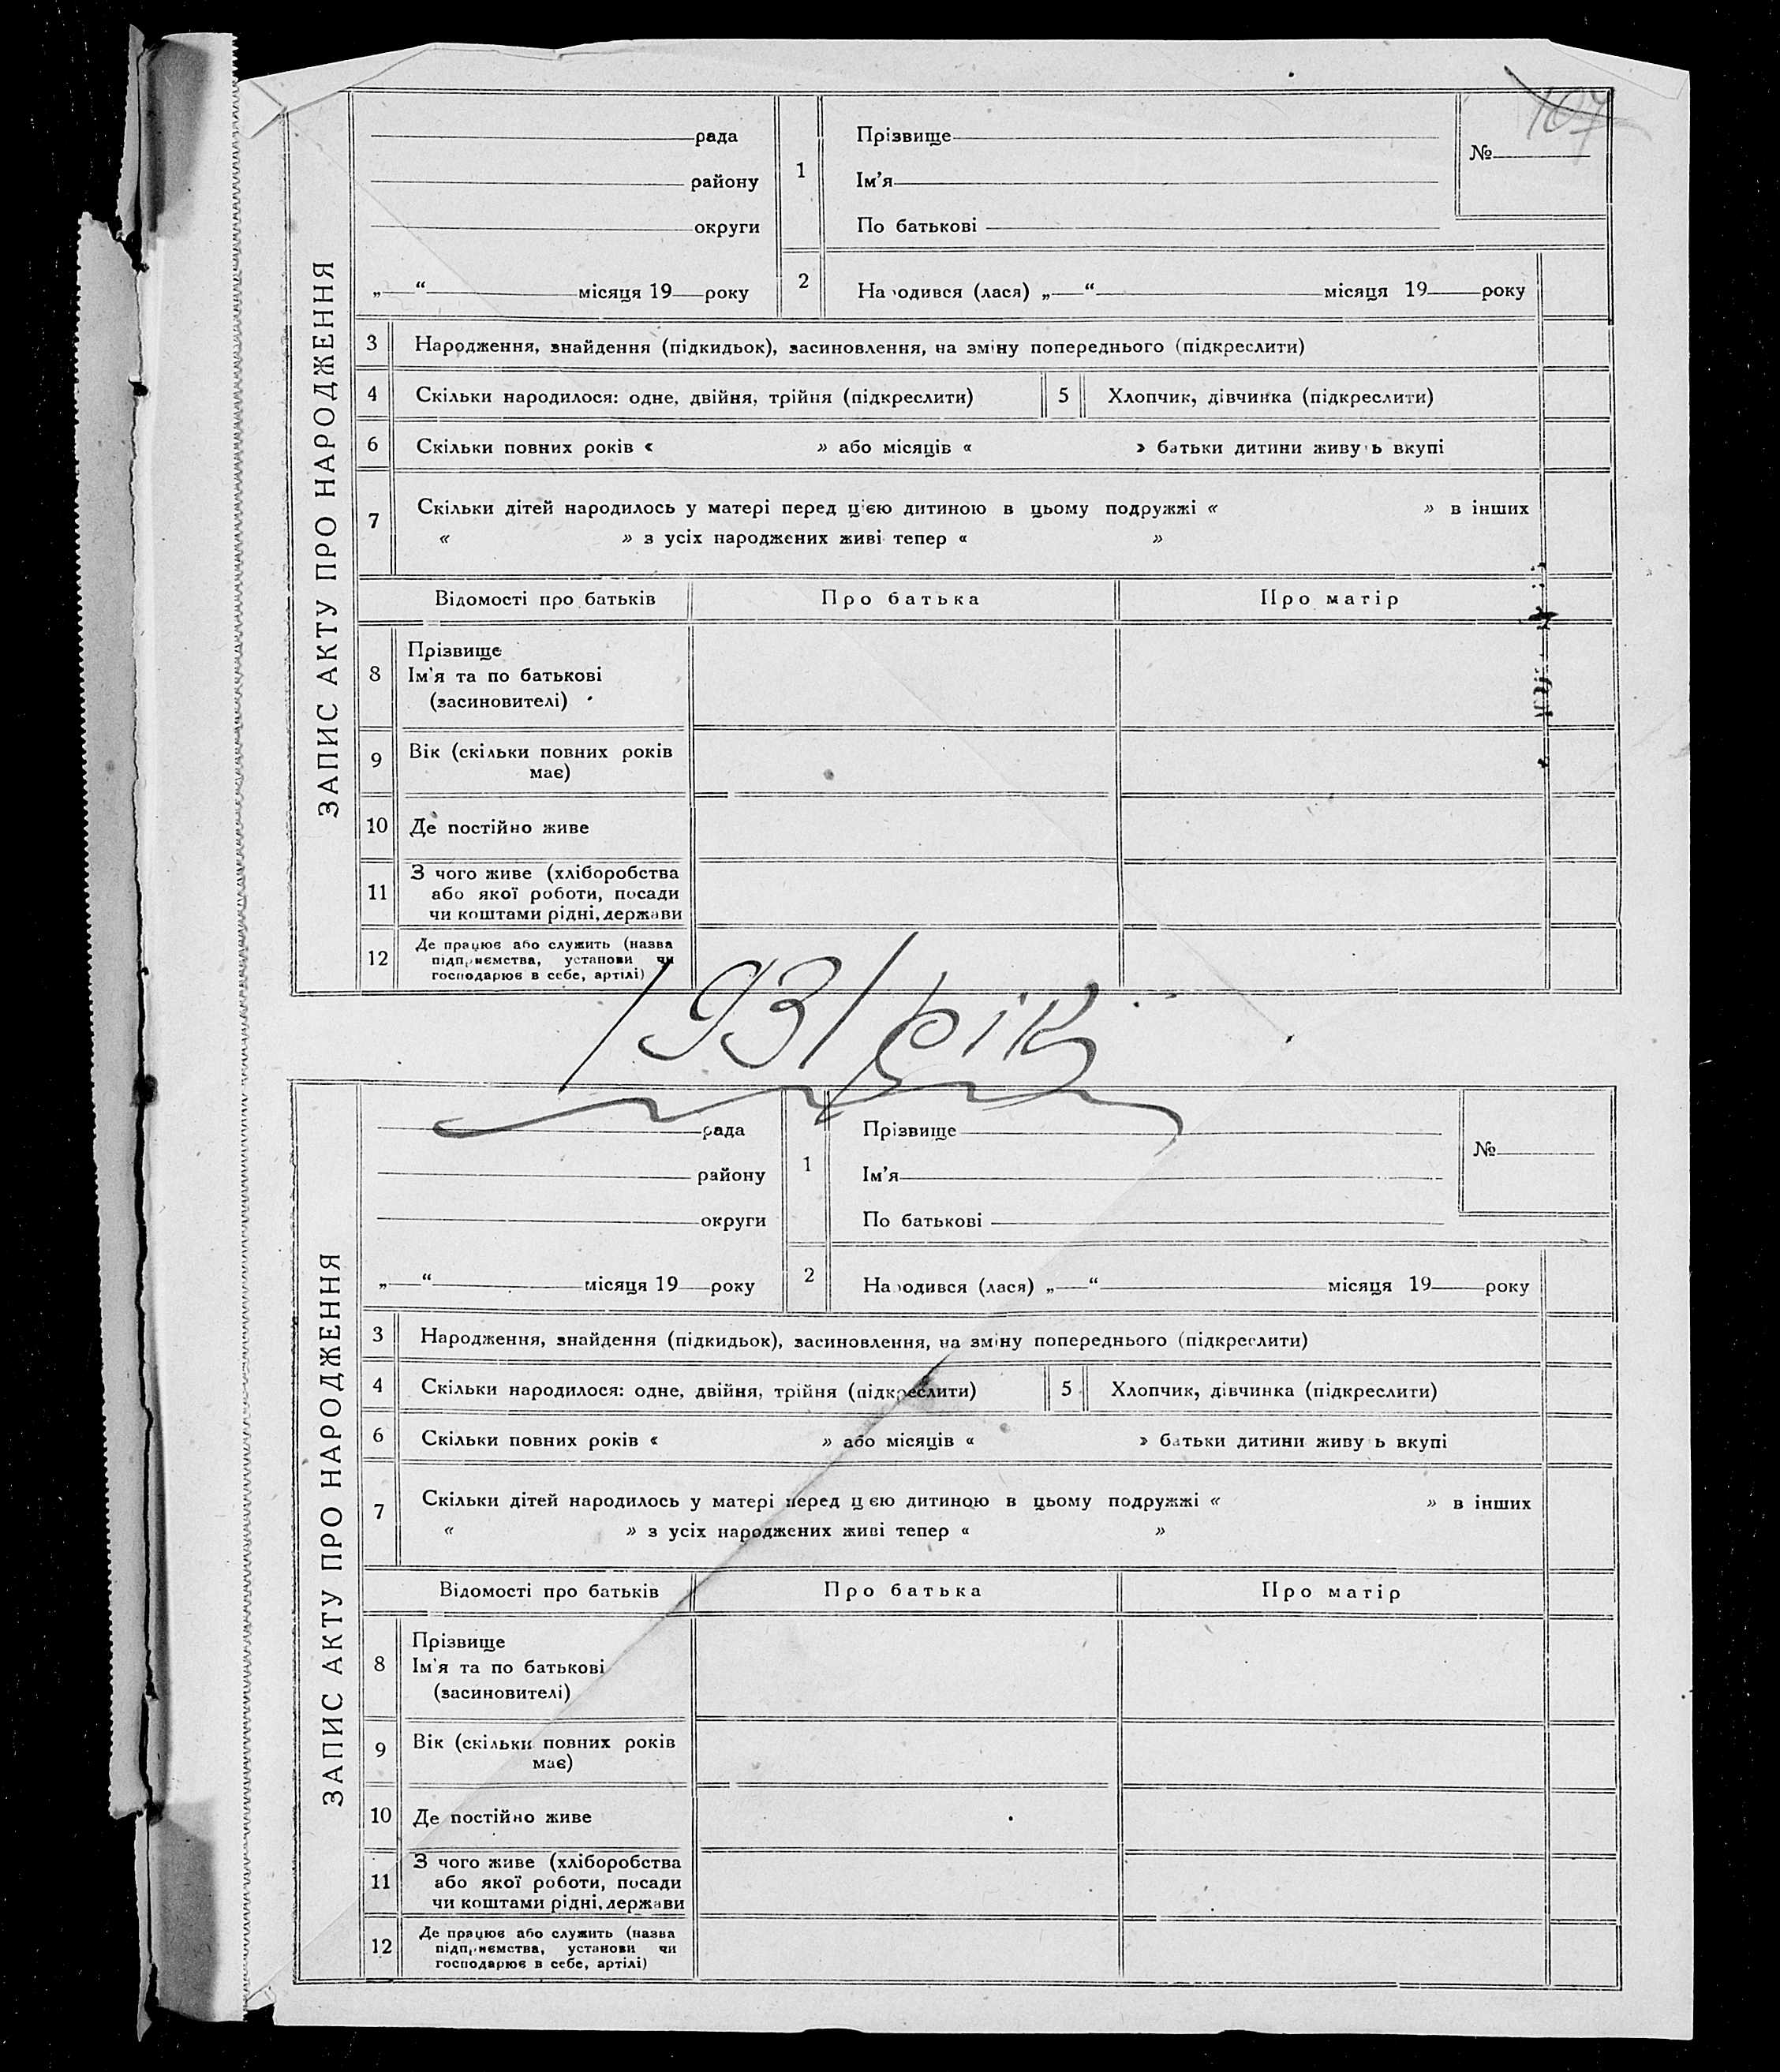 107
ЗАПИС АКТУ ПРО НАРОДЖЕННЯ
рада
району
округи
„ “ місяця 19 року
1
Прізвище
Ім’я
По батькові
№
2
Народився (лася) „ “ місяця 19 року
3 Народження, знайдення (підкидьок), засиновлення, на зміну попереднього (підкреслити)
4 Скільки народилося: одне, двійня, трійня (підкреслити) 5 Хлопчик, дівчинка (підкреслити)
6 Скільки повних років « » або місяців « » батьки дитини живуть вкупі
7 Скільки дітей народилось у матері перед цією дитиною в цьому подружжі « » в інших
« » з усіх народжених живі тепер « »
Відомості про батьків Про батька Про матір
8 Прізвище
Ім’я та по батькові
(засиновителі)
9 Вік (скільки повних років
має)
10 Де постійно живе
11 З чого живе (хліборобства
або якої роботи, посади
чи коштами рідні, держави
12 Де працює або служить (назва
підприємства, установи чи
господарює в себе, артілі)
1931 рік
ЗАПИС АКТУ ПРО НАРОДЖЕННЯ
рада
району
округи
„ “ місяця 19 року
1
Прізвище
Ім’я
По батькові
№
2
Народився (лася) „ “ місяця 19 року
3 Народження, знайдення (підкидьок), засиновлення, на зміну попереднього (підкреслити)
4 Скільки народилося: одне, двійня, трійня (підкреслити) 5 Хлопчик, дівчинка (підкреслити)
6 Скільки повних років « » або місяців « » батьки дитини живуть вкупі
7 Скільки дітей народилось у матері перед цією дитиною в цьому подружжі « » в інших
« » з усіх народжених живі тепер « »
Відомості про батьків Про батька Про матір
8 Прізвище
Ім’я та по батькові
(засиновителі)
9 Вік (скільки повних років
має)
10 Де постійно живе
11 З чого живе (хліборобства
або якої роботи, посади
чи коштами рідні, держави
12 Де працює або служить (назва
підприємства, установи чи
господарює в себе, артілі)